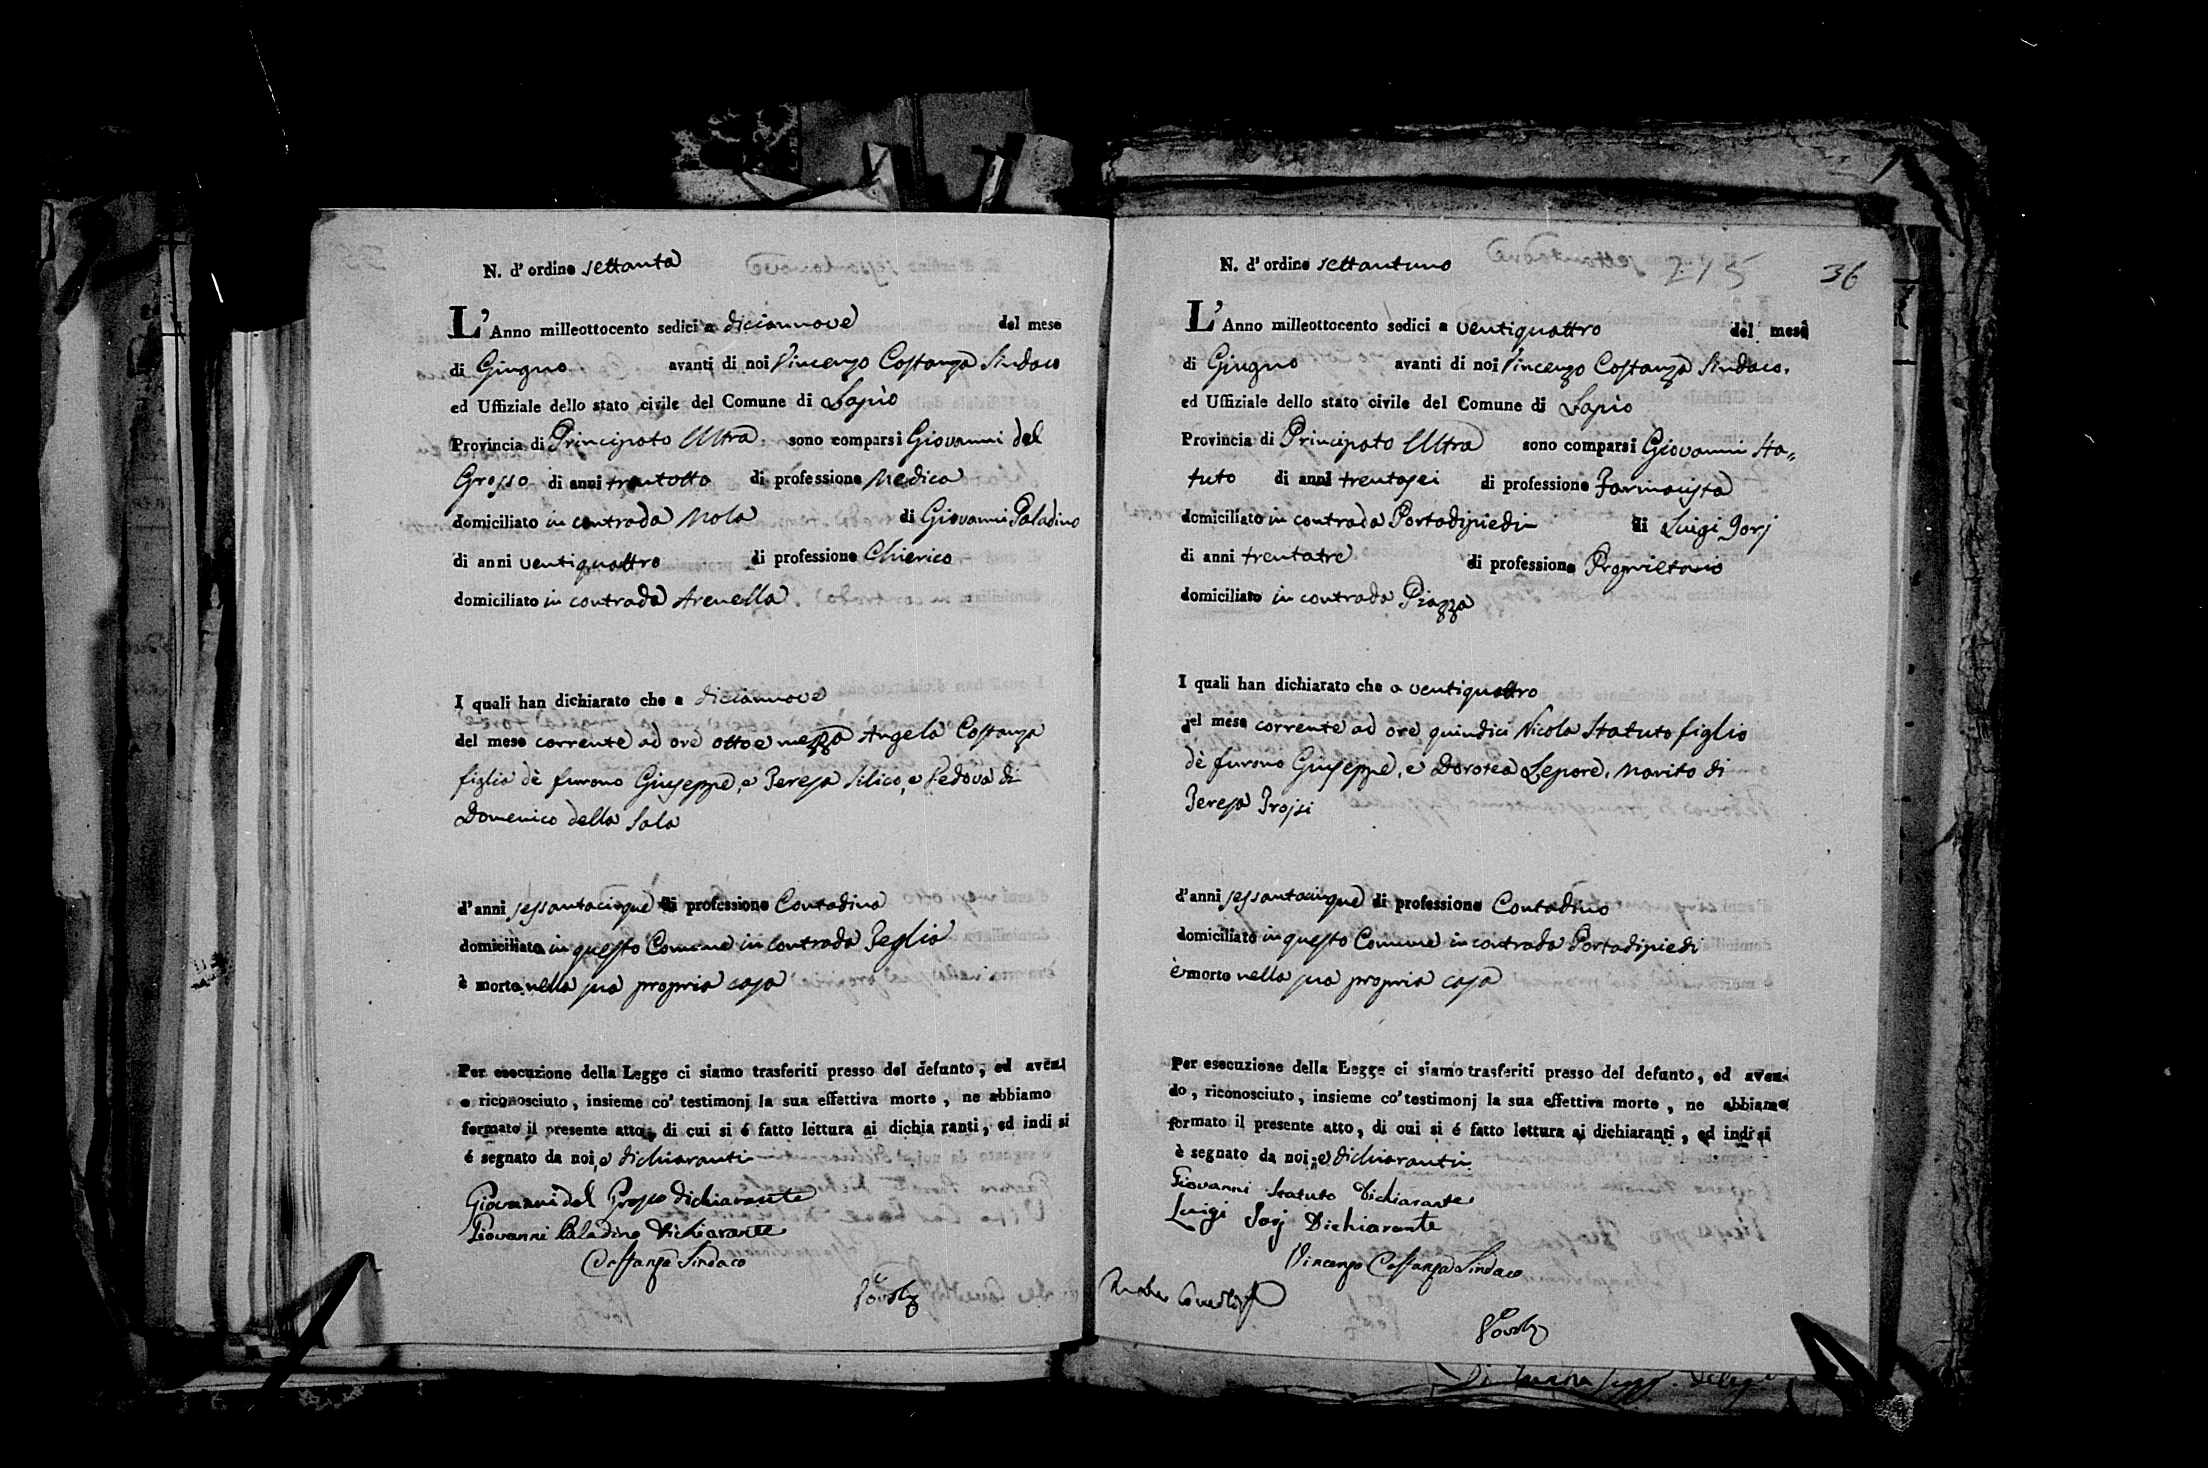 N. d' ordine settanta
L' Anno milleottocento sedici a diciannove del mese
di Giugno avanti di noi Vincenzo Costanza Sindaco
ed Uffiziale dello stato civile del Comune di Lapio
Provincia di Principato Ultra sono comparsi Giovanni del
Grosso di anni trentotto di professione Medico
domiciliato in contrada Mola di Giovanni Paladino
di anni ventiquattro di professione Chierico
domiciliato in contrada Arenella
I quali han dichiarato che a diciannove
del mese corrente ad ore otto e mezza Angela Costanza
figlia dè furono Giuseppe, e Teresa Silico, e Vedova di
Domenico della Sala
d'anni sessantacinque di professione Contadina
domiciliata in questo Comune in contrada Teglia
è morta nella sua propria casa
Per esecuzione della Legge ci siamo trasferiti presso del defunto, ed aven
o riconosciuto, insieme co' testimonj la sua effettiva morte, ne abbiamo
formato il presente atto, di cui si é fatto lettura ai dichia ranti, ed indi si
é segnato da noi, e dichiaranti
Giovanni del Grosso dichiarante
Giovanni Paladino Dichiarante
Costanza Sindaco
N. d' ordine settantuno
215
36
L' Anno milleottocento sedici a ventiquattro del mese
di Giugno avanti di noi Vincenzo Costanza Sindaco,
ed Uffiziale dello stato civile del Comune di Lapio
Provincia di Principato Ultra sono comparsi Giovanni Sta=
tuto di anni trentasei di professione Farmacista
domiciliato in contrada Portadipiedi di Luigi Jorj
di anni trentatre di professione Proprietario
domiciliato in contrada Piazza
I quali han dichiarato che a ventiquattro
del mese corrente ad ore quindici Nicola Statuto figlio
dè furono Giuseppe, e Dorotea Lepore, Marito di
Teresa Trojsi
d'anni sessantacinque di professione Contadino
domiciliato in questo Comune in contrada Portadipiedi
è morto nella sua propria casa
Per esecuzione della Legge ci siamo trasferiti presso del defunto, ed aven-
do, riconosciuto, insieme co' testimonj la sua effettiva morte, ne abbiamo
formato il presente atto, di cui si é fatto lettura ai dichiaranti, ed indi si
è segnato da noi, e dichiaranti
Giovanni Statuto Dichiarante
Luigi Jorj Dichiarante
Vincenzo Costanza Sindaco